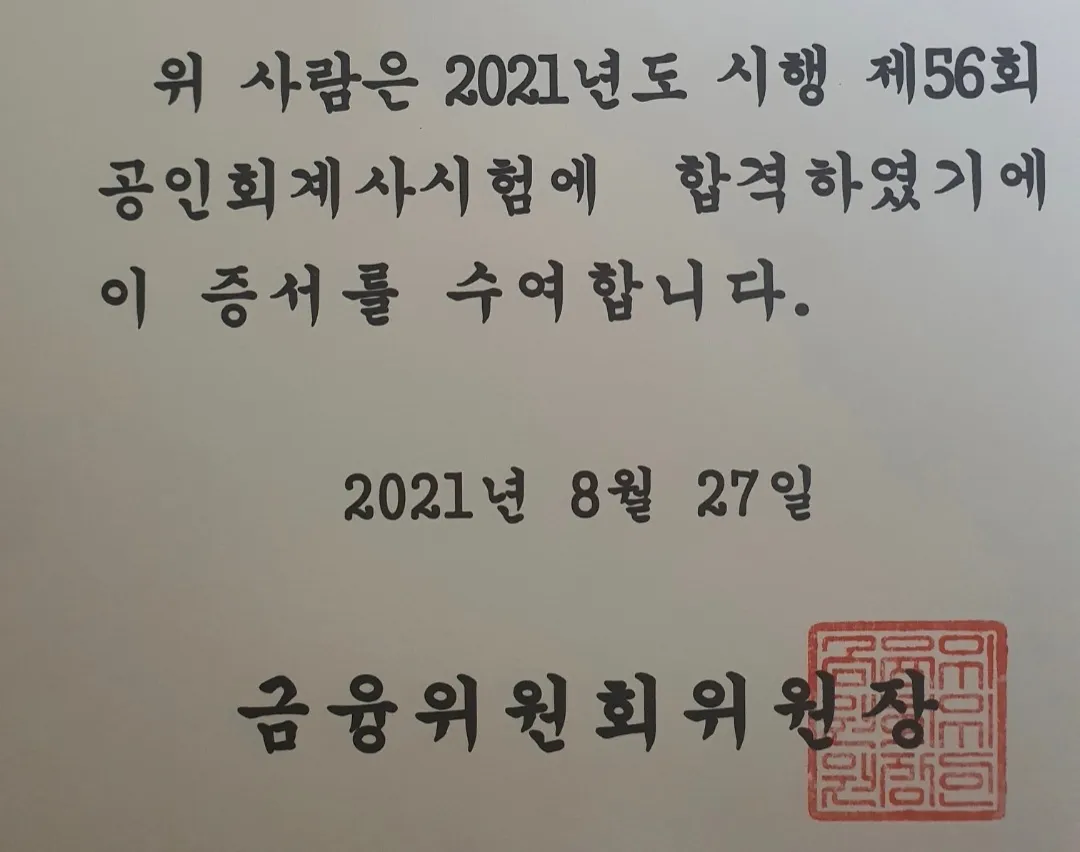 위 사람은 2021년도 시행 제56회
공인회계사시험에 합격하였기에
이 증서를 수여합니다.
2021년 8월 27일
금융위원회위원장